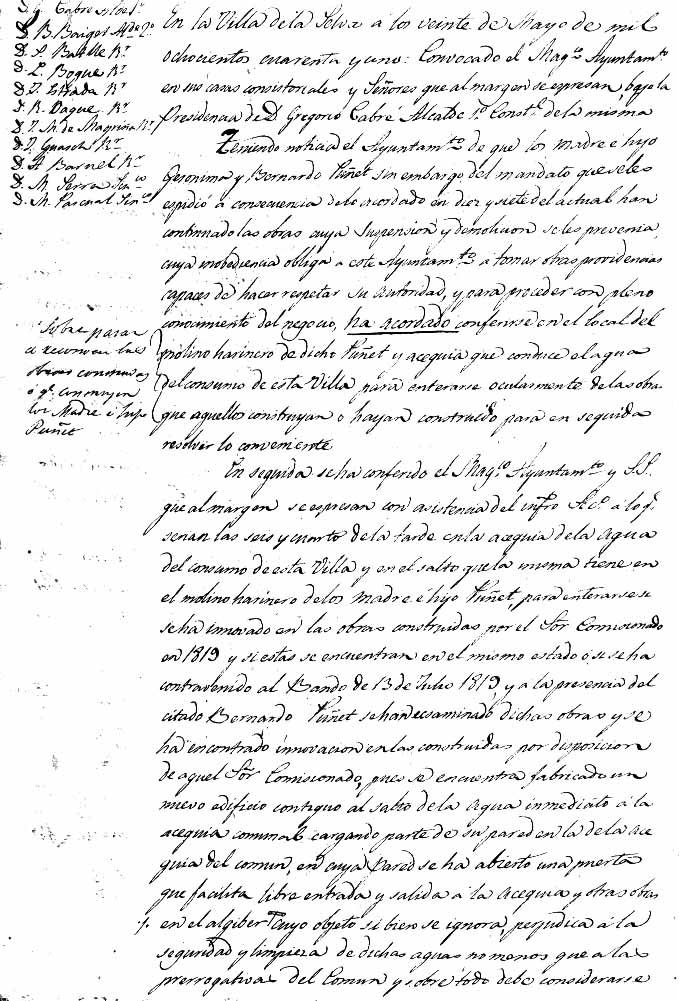 D. G. Cabre
D. B. Baiges Alde 2º
D. P. Batlle Rr
D. Bogue Rr
D. Estrada Rr
D. R. Dague Rr
D. J. M. de Magriña Rr
D. J. Guasch Rr
D. A. Barnel Rr
D. M. Serra Sinco
D. M. Pascual Sinco
En la Villa de la Selva a los veinte de Mayo de mil
ochocientos cuarenta y uno: Convocado el Magco Ayuntamto
en sus casas consistoriales y Señores que al margen se espresan bajo la
Presidencia de D. Gregorio Cabré Alcalde 1º Constl de la misma
Teniendo noticia el Ayuntamto de que los madre e hijo
Geronima y Bernardo Puñet sin embargo del mandato que se les
espidió a consecuencia de lo acordado en diez y siete del actual han
continuado las obras cuya suspension y demolicion se les prevenia,
cuya inobediencia obliga a este Ayuntamto a tomar otras providencias
capaces de hacer respetar su autoridad, y para proceder con pleno
conocimiento del negocio, ha acordado conferirse en el local del
molino harinero de dicho Puñet y acequia que conduce el agua
del consumo de esta Villa para enterarse ocularmente de las obras
que aquellos construyan o hayan construido para en seguida
resolver lo conveniente
Sobre pasar
a reconocer las
obras construidas
ó qe construyen
los Madre é hijo
Puñet
En seguida se ha conferido el Magco Ayuntamto y S.S.
que al margen se espresan con asistencia del infro Srio a lo qe
serian las seis y cuarto de la tarde en la acequia de la agua
del consumo de esta Villa y en el salto que la misma tiene en
el molino harinero de los madre é hijo Puñet, para enterarse si
se ha innovado en las obras construidas por el Sor Comisionado
en 1819 y si estas se encuentran en el mismo estado ó si se ha
contravenido al Bando de 13 de Julio 1819, y a la presencia del
citado Bernardo Puñet se han ecsaminado dichas obras y se
ha encontrado innovacion en las construidas por disposicion
de aquel Sor Comisionado, pues se encuentra fabricado un
nuevo edificio contiguo al salto de la agua inmediato á la
acequia comunal cargando parte de su pared en la de la ace
quia del comun, en cuya Pared se ha abierto una puerta
que facilita libre entrada y salida á la acequia y otras obras
en el algiber cuyo objeto si bien se ignora, perjudica á la
seguridad y limpieza de dichas aguas no menos que a las
prerrogativas del Comun y sobre todo debe considerarse